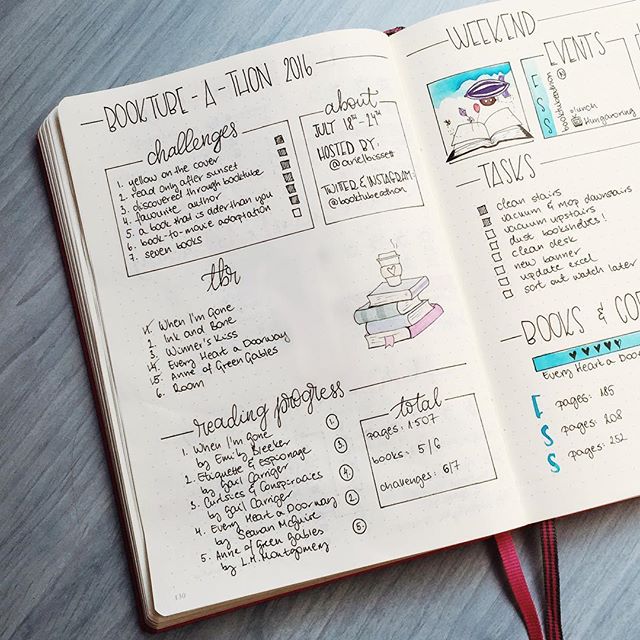 BOOKTUBE-A-THON 2016
challenges
1. yellow on the cover
2. read only after sunset
3. discovered through booktube
4. favourite author
5. a book that is older than you
6. book-to-movie adaptation
7. seven books
about
JULY 18TH - 24TH
HOSTED BY:
@arielbissett
TWITTER & INSTAGRAM:
@booktubeathon
tbr
1. When I'm Gone
2. Ink and Bone
3. Winner's Kiss
4. Every Heart a Doorway
5. Anne of Green Gables
6. Room
reading progress
1. When I'm Gone
by Emily Bleeker
1.
2. Etiquette & Espionage
by Gail Carriger
3
3. Curtsies & Conspiracies
by Gail Carriger
4
4. Every Heart a Doorway
by Seanan McGuire
2
5. Anne of Green Gables
by L.M. Montgomery
5.
total
pages: 1507
books: 5/6
challenges: 6/7
130
WEEKEND
EVENTS
F
S
S
lunch
TASKS
clean stairs
vacuum & mop downstairs
vacuum upstairs
dust bookshelves!
clean desk
new banner
update excel
sort out watch later
BOOKS & CO
Every Heart a Doo
F pages: 185
S pages: 208
S pages: 252